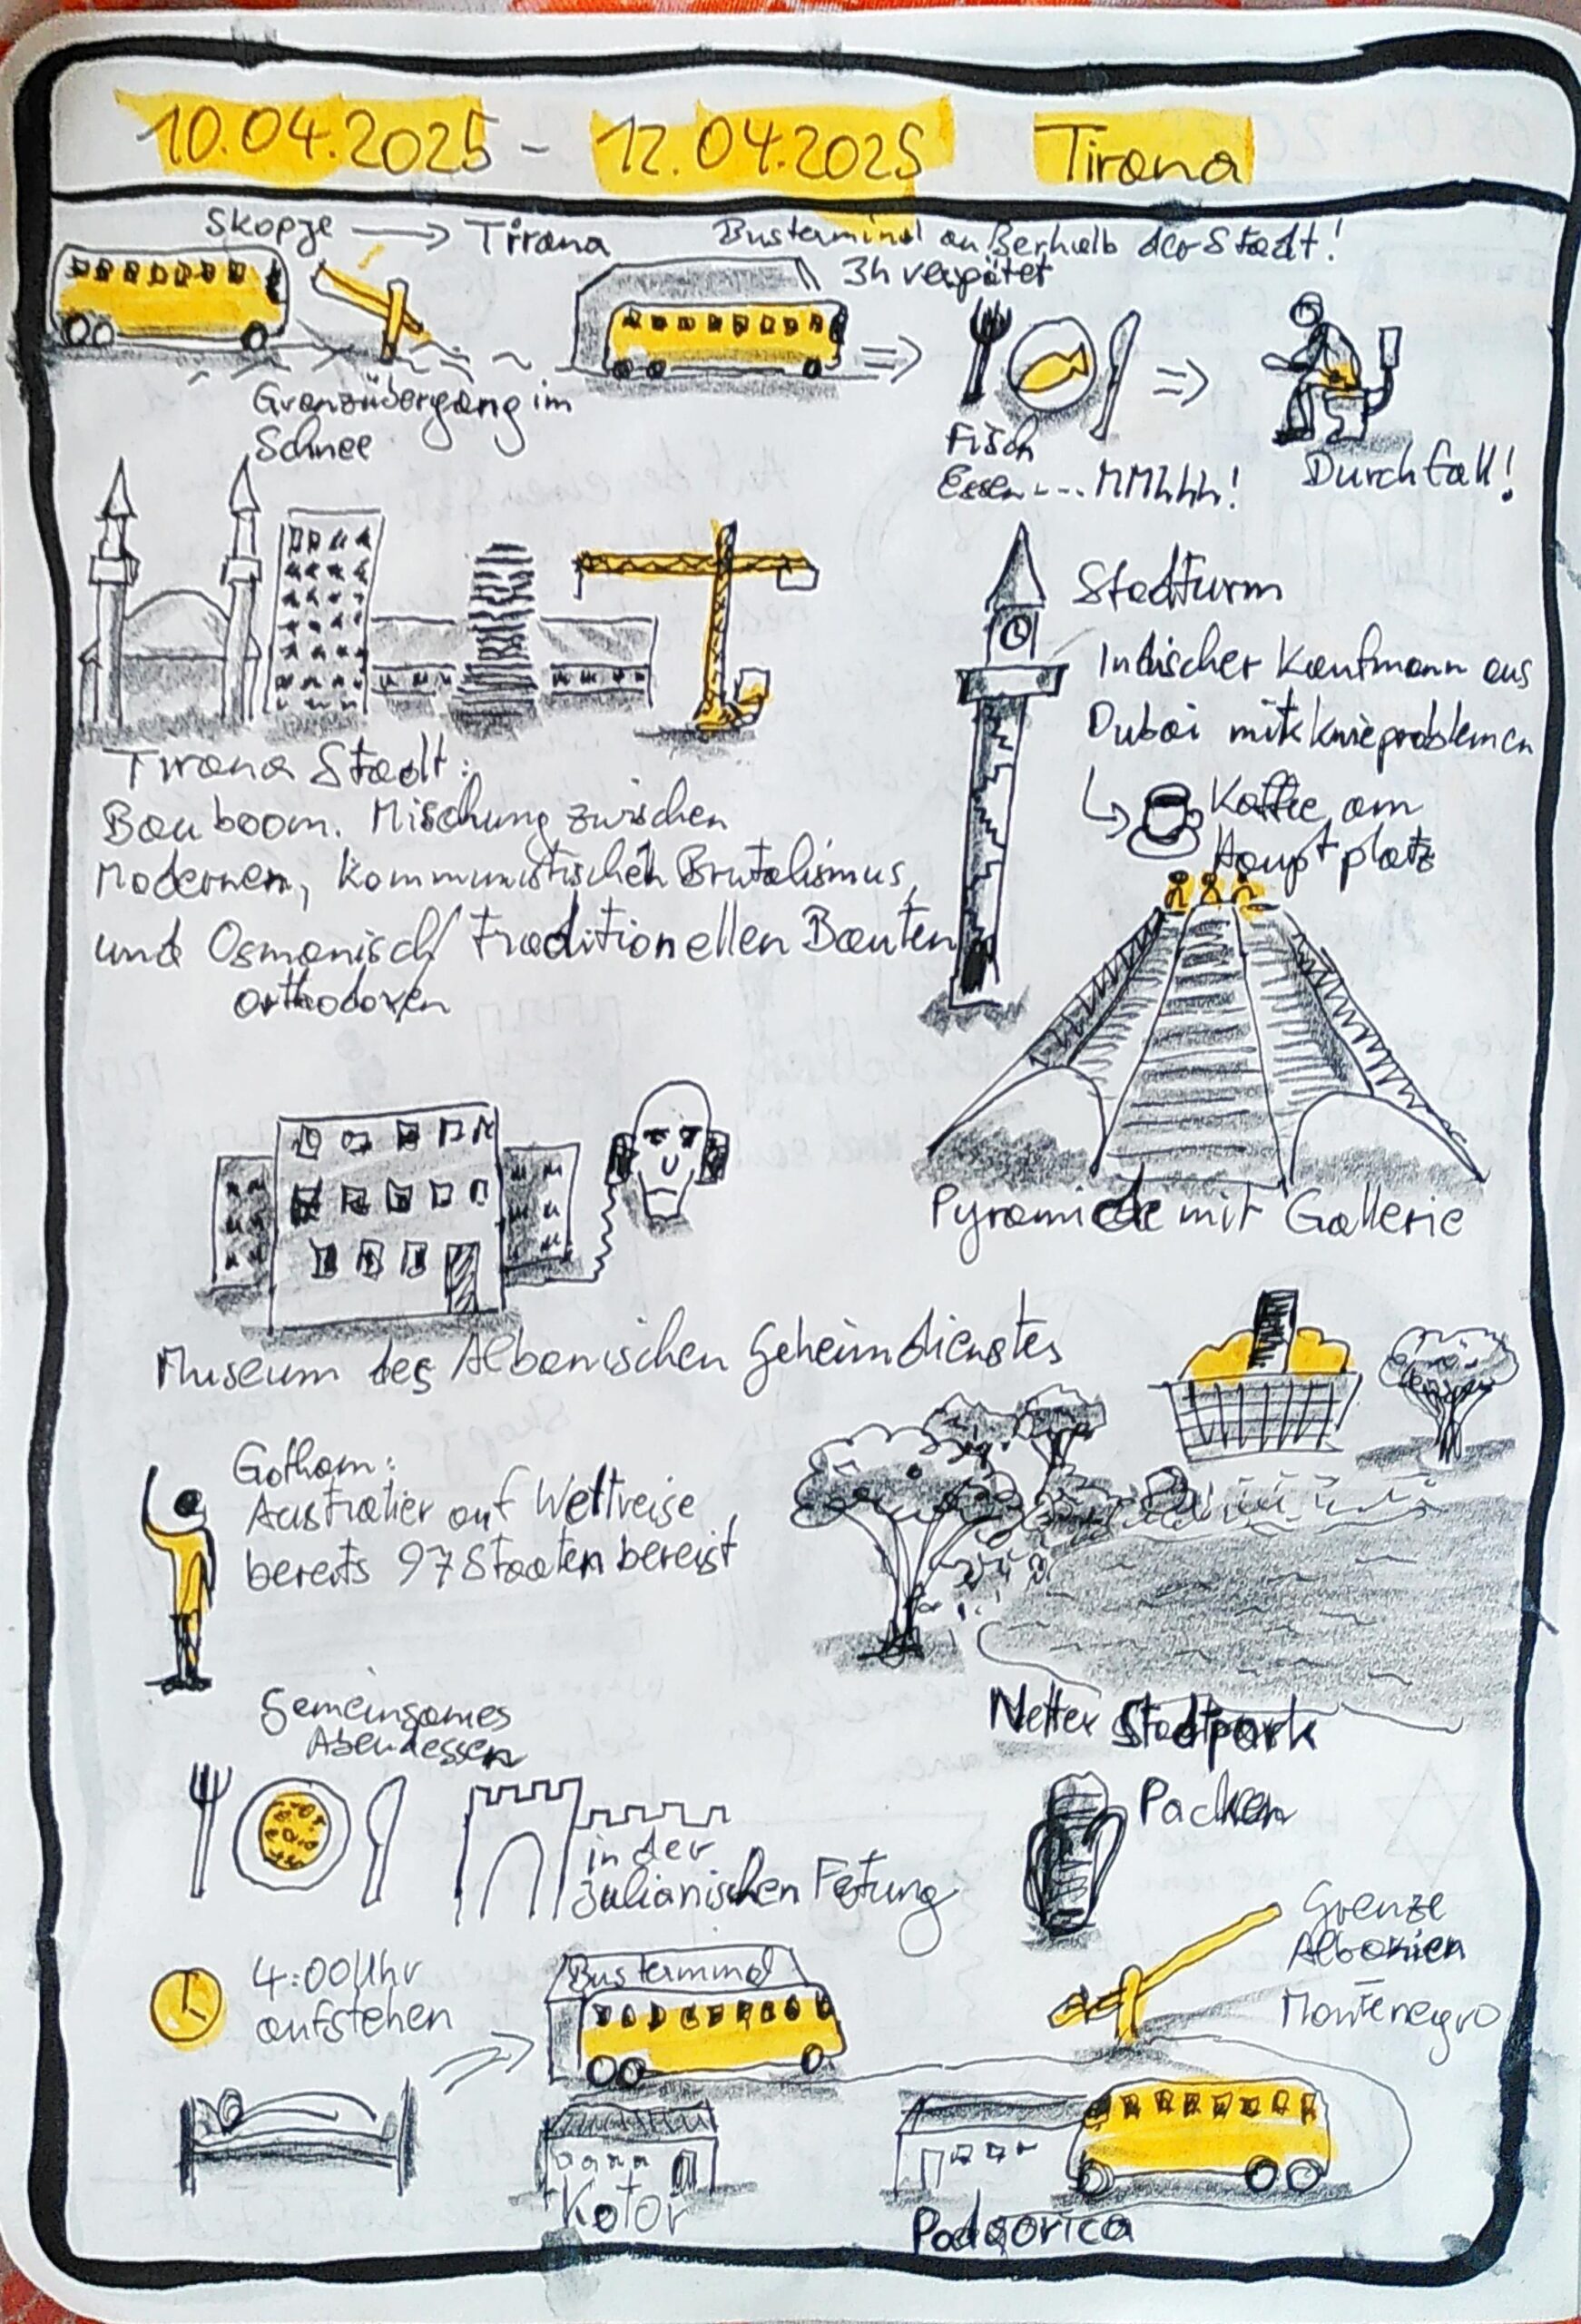 10.04.2025 - 12.04.2025 Tirana
Skopje → Tirana
Busterminal außerhalb der Stadt!
3h verspätet
Grenzübergang im
Schnee
Fisch
Essen.... MMhhh!
Durchfall!
Stadtturm
Indischer Kaufmann aus
Dubai mit Knieproblemen
Kaffee am
Hauptplatz
Tirana Stadt:
Bauboom. Mischung zwischen
Modernen, Kommunistischen Brutalismus,
und Osmanisch/ traditionellen Bauten
orthodoxen
Pyramide mit Gallerie
Museum des Albanischen Geheimdienstes
Gotham:
Australier auf Weltreise,
bereits 97 Staaten bereist
Netter Stadtpark
Gemeinsames
Abendessen
in der
Julianischen Fetung
Packen
4:00 Uhr
aufstehen
Busterminal
Grenze
Albanien
–
Montenegro
Kotor
Podgorica